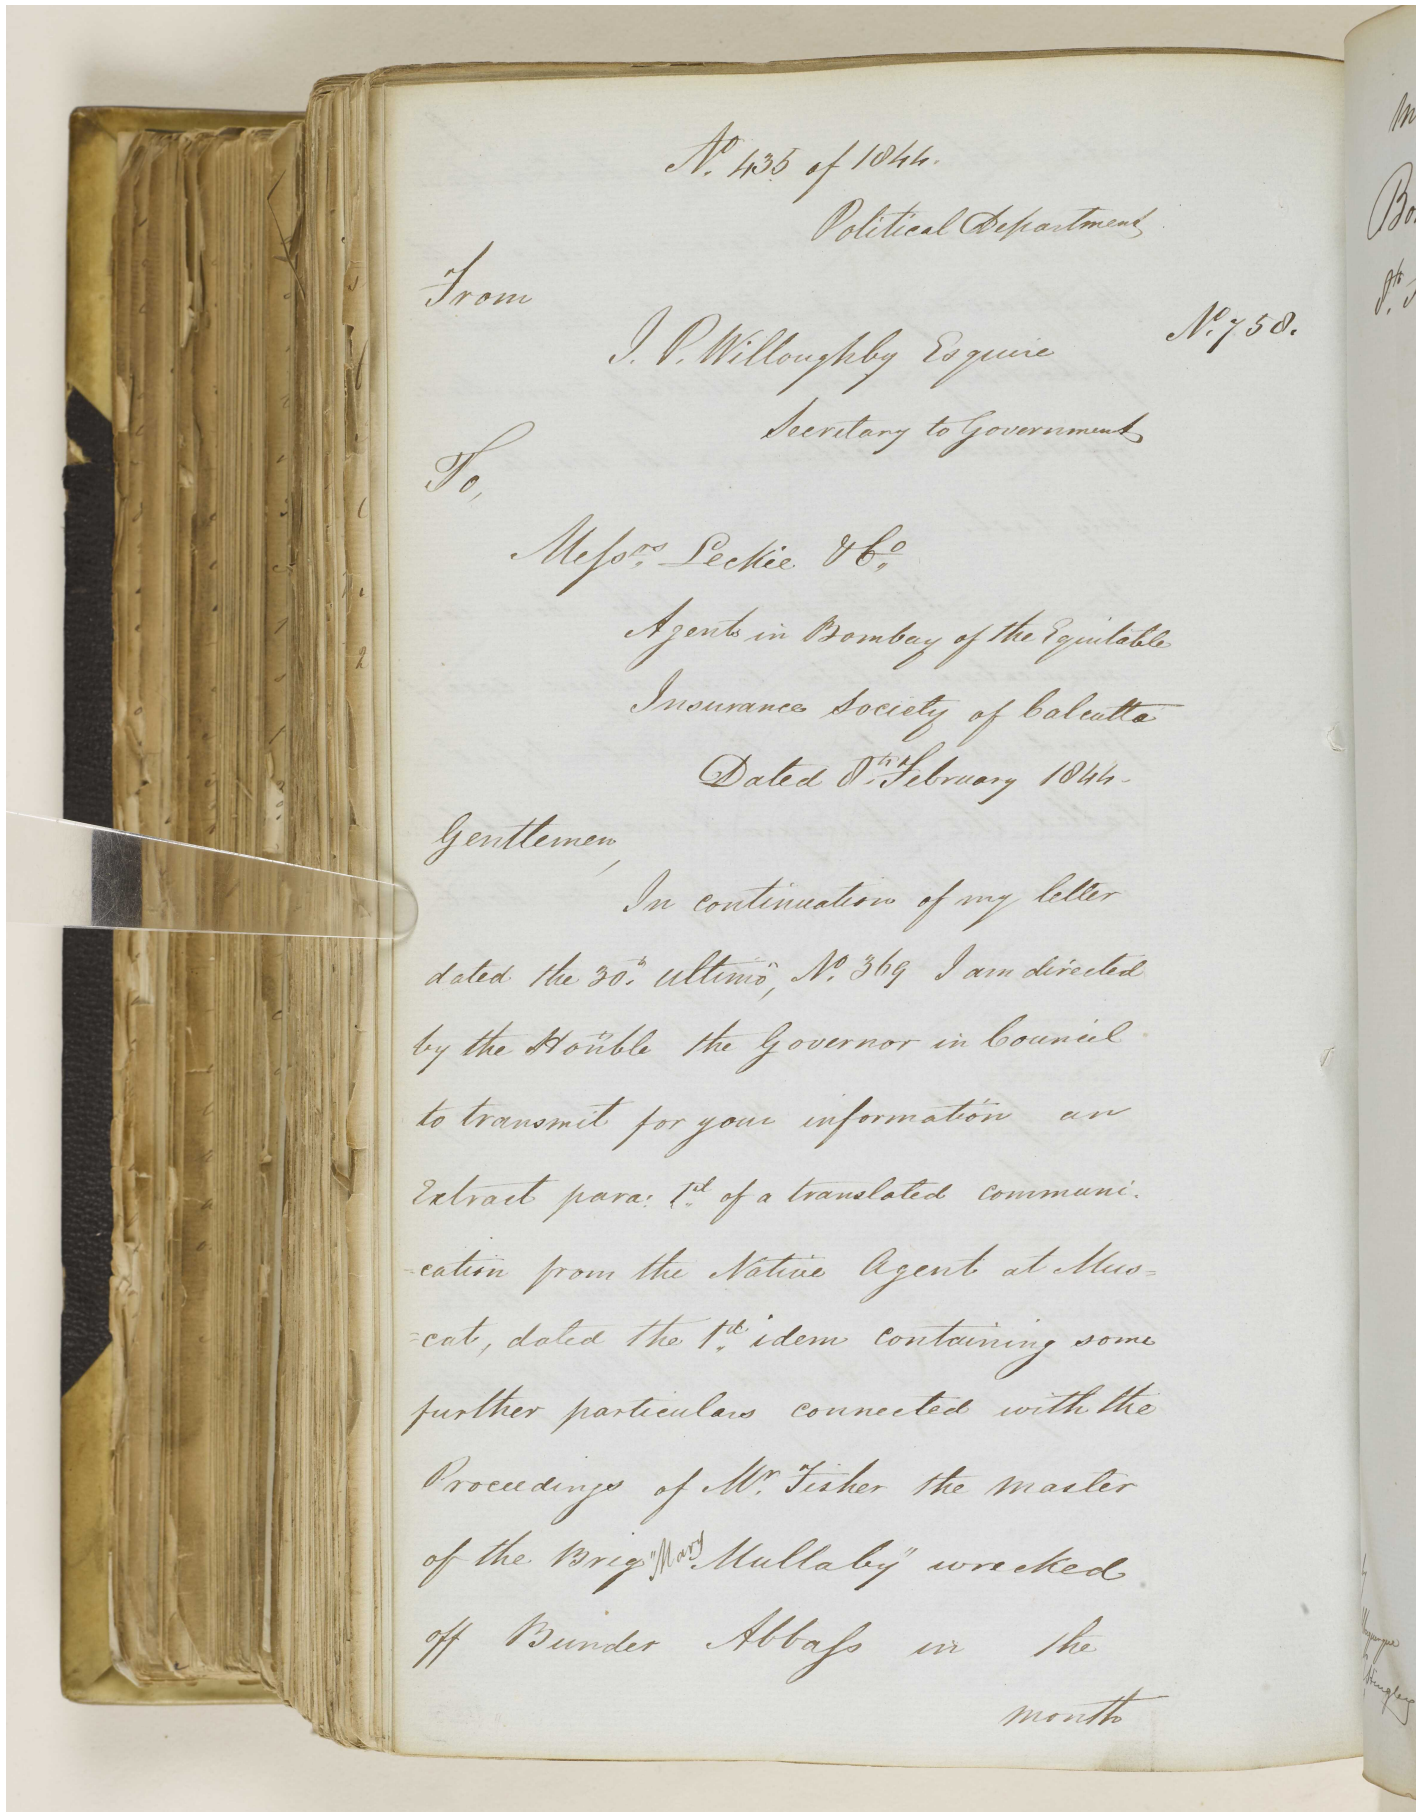 No. 435 of 1844.
Political Department
From
J. P. Willoughby Esquire
No. 758.
Secretary to Government
To,
Messrs. Leckie & Co.
Agents in Bombay of the Equitable
Insurance Society of Calcutta
Dated 8th. February 1844.
Gentlemen,
In continuation of my letter
dated the 30th. ultimo, No. 369 I am directed
by the Honble the Governor in Council
to transmit for your information an
Extract para: 1st. of a translated communi-
=cation from the Native Agent at Mus=
=cat, dated the 1st. idem containing some
further particulars connected with the
Proceedings of Mr. Fisher the master
of the Brig "Mary Mullaby" wrecked
off Bunder Abbass in the
month